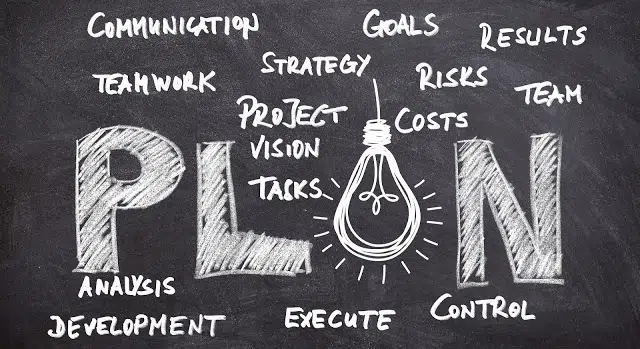 COMMUNICATION
GOALS
RESULTS
STRATEGY
TEAMWORK
RISKS
TEAM
PROJECT
COSTS
VISION
TASKS
PL N
ANALYSIS
DEVELOPMENT
EXECUTE
CONTROL